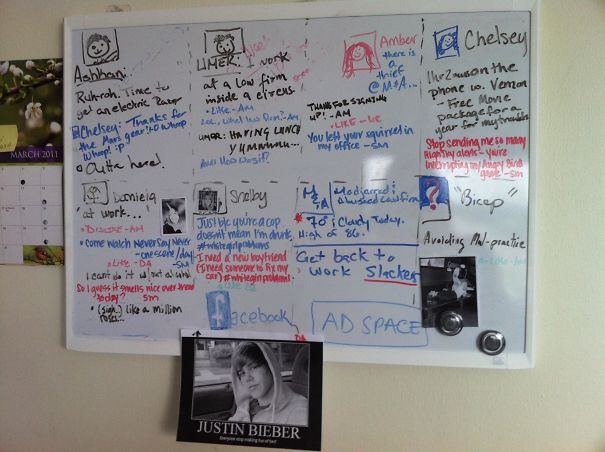 MARCH 2011
Ashhan:
Ruh-roh. Time to
get an electric Razor
Chelsey: - Thanks for
the Mars gear! XD whoop
whoop! :p
Outta here!
UMER: I work
at a law firm
inside a circus.
- Like - AM
UMER: HAVING LUNCH
yummmmu...
Amber
there is
a
thief
@ M&A...
THANKS FOR SIGNING
UP! - AM
- LIKE - UE
You left your squirrel in
my office - SM
Chelsey
1 hr 2 min on the
phone w. Verizon
- Free Movie
package for a
year for my troubles
Stop sending me so many
interrupting my Angry Birds
game - SM
Daniela
"at work...
- DISLIKE - AM
Come Watch Never Say Never
- one scene/day
- SM
- LIKE - DA
I can't do it
So I guess it smells nice over there
today? SM
(sigh..) like a million
roses...
Shelby
Just b/c you're a cop
doesn't mean I'm drunk.
#whitegirlproblems
I need a new boyfriend
(I need someone to fix my
car) #whitegirlproblems
M&A
70° : Cloudy Today.
High of 86.
Get back to
work Slackers
"Bicep"
Avoiding Mal-practice
facebook
AD SPACE
DA
JUSTIN BIEBER
Everyone stop making fun of her!